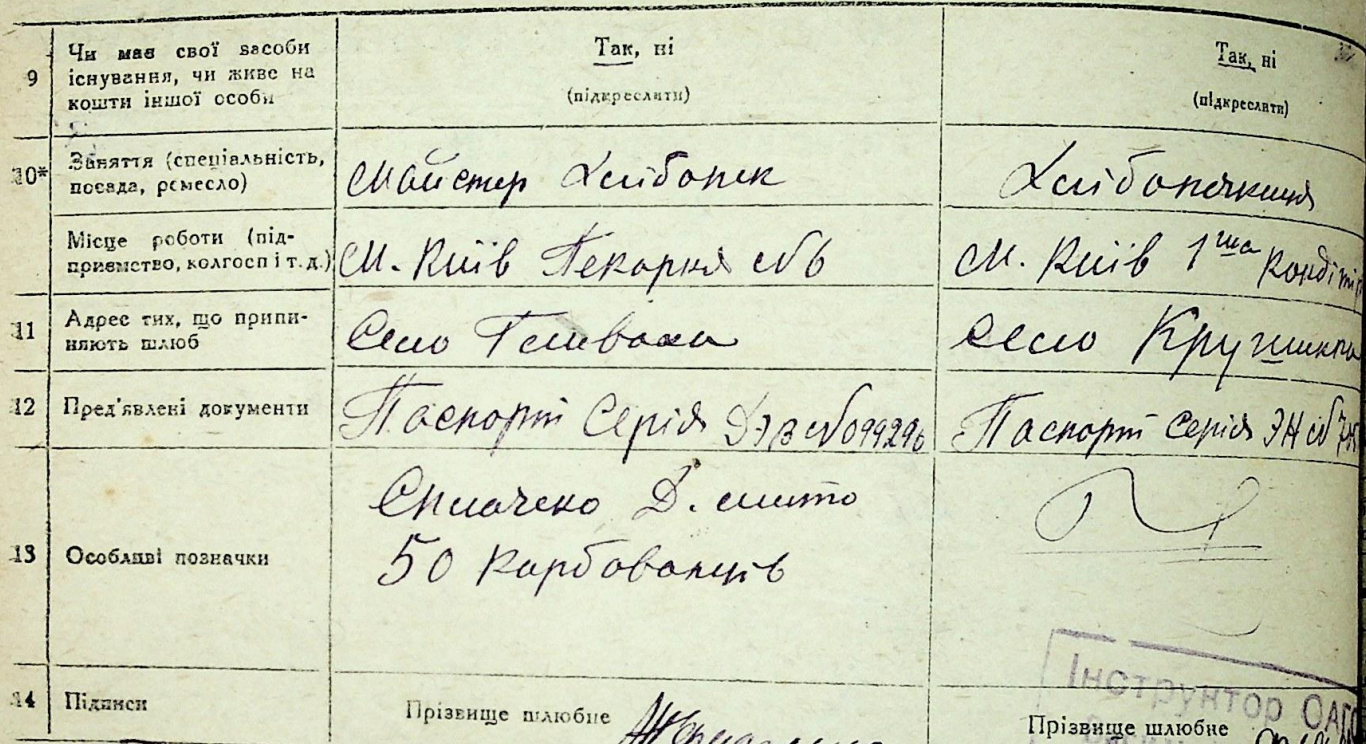 9 Чи має свої засоби існування, чи живе на кошти іншої особи
Так, ні
(підкреслити)
Так, ні
(підкреслити)
10* Заняття (спеціальність, посада, ремесло)
Майстер Хлібопек
Хлібопекниця
Місце роботи (під-приємство, колгосп і т. д.)
М. Київ Пекарня №6
М. Київ 1ша Кондіт
11 Адрес тих, що припи-няють шлюб
Село Глеваха
Село Кру
12 Пред'явлені документи
Паспорт Серія № 099296
Паспорт Серія ЭН №
13 Особливі позначки
Сплачено Д. мито
50 Карбованців
14 Підписи
Прізвище шлюбне
Прізвище шлюбне
Інструктор